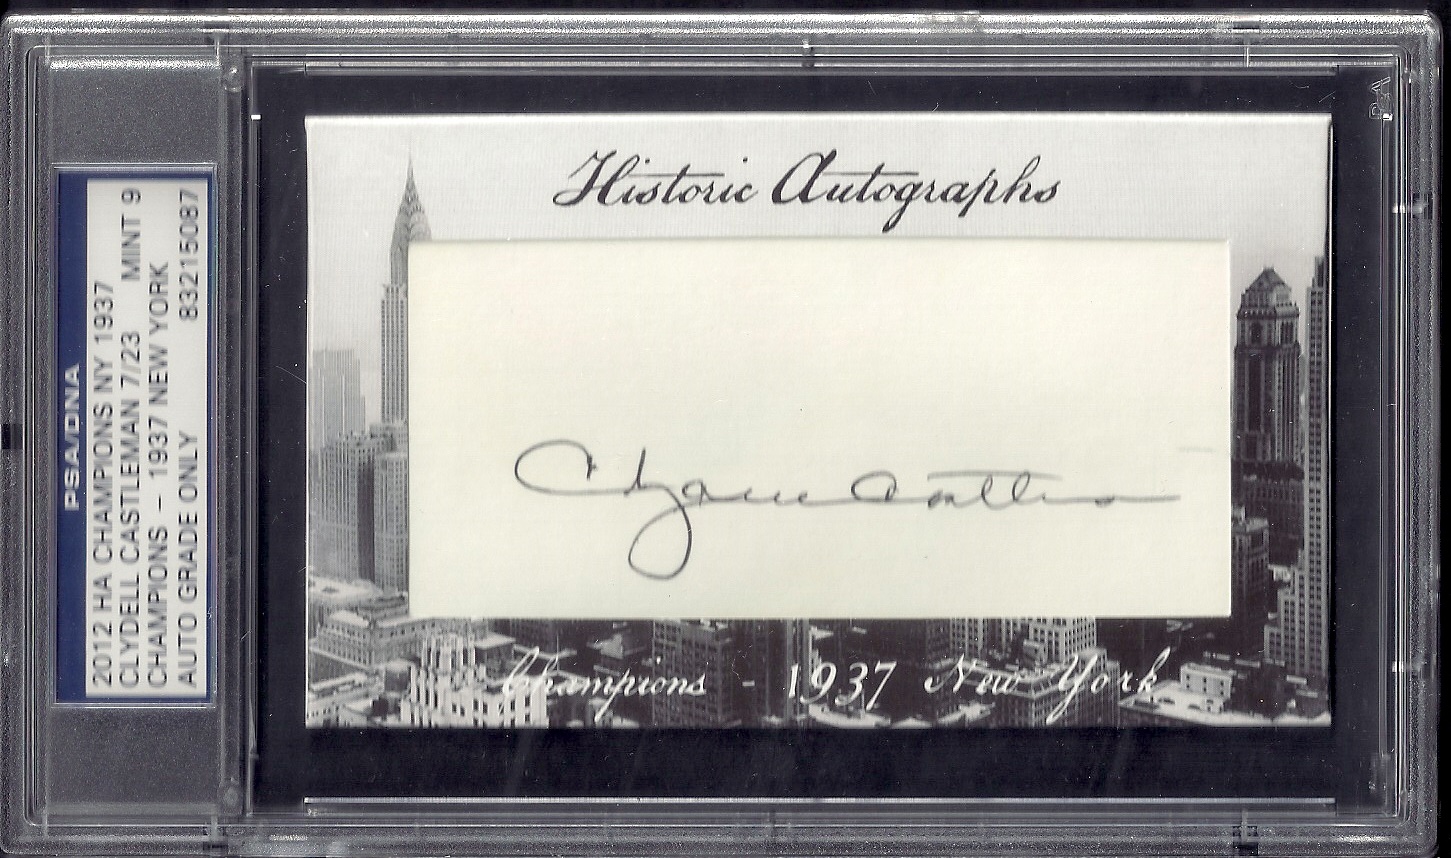 PSA/DNA
2012 HA CHAMPIONS NY 1937
CLYDELL CASTLEMAN 7/23 MINT 9
CHAMPIONS – 1937 NEW YORK
AUTO GRADE ONLY 83215087
Historic Autographs
Champions - 1937 New York